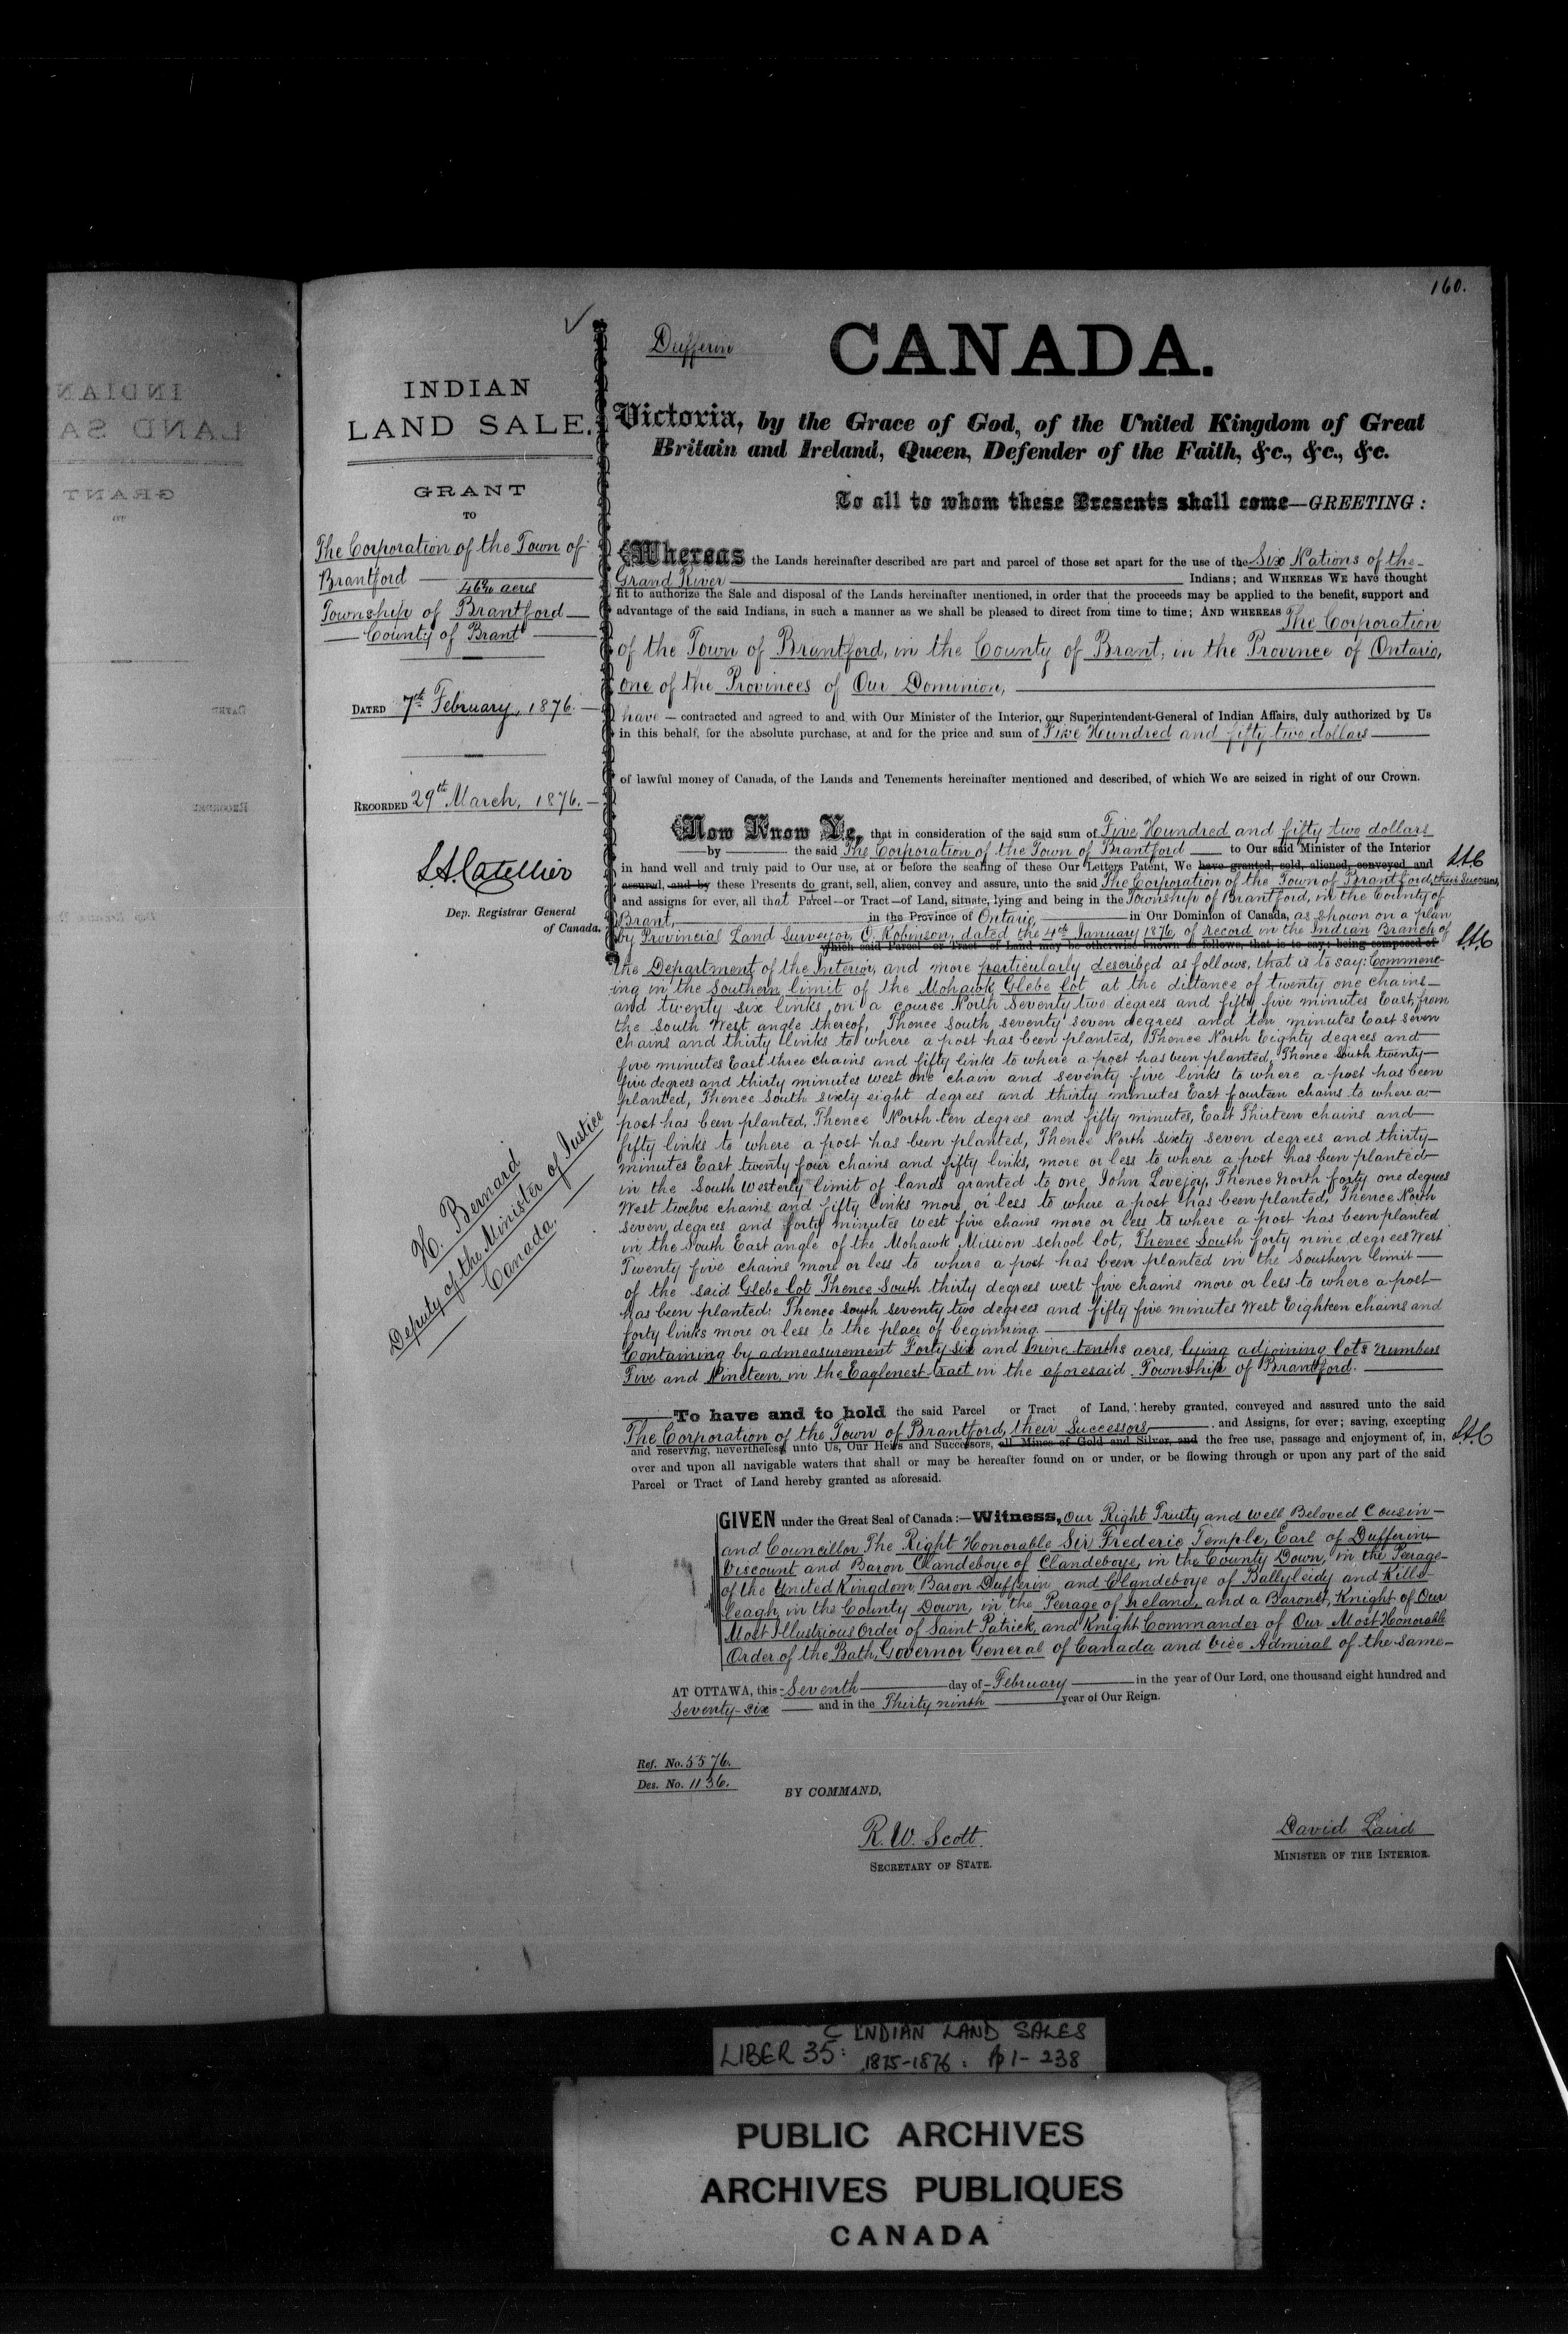 160.
Dufferin
CANADA.
INDIAN
LAND SALE.
GRANT
TO
The Corporation of the Town of
Brantford
46 9/10 acres
Township of Brantford
County of Brant
DATED 7th February, 1876.
RECORDED 29th March, 1876.
L.A. Catellier
Dep. Registrar General
of Canada.
H. Bernard
Deputy of the Minister of Justice
Canada.
Victoria, by the Grace of God, of the United Kingdom of Great
Britain and Ireland, Queen, Defender of the Faith, &c., &c., &c.
To all to whom these Presents shall come—GREETING:
Whereas the Lands hereinafter described are part and parcel of those set apart for the use of the Six Nations of the
Grand River Indians; and WHEREAS WE have thought
fit to authorize the Sale and disposal of the Lands hereinafter mentioned, in order that the proceeds may be applied to the benefit, support and
advantage of the said Indians, in such a manner as we shall be pleased to direct from time to time; AND WHEREAS The Corporation
of the Town of Brantford, in the County of Brant, in the Province of Ontario,
one of the Provinces of Our Dominion,
have contracted and agreed to and with Our Minister of the Interior, our Superintendent-General of Indian Affairs, duly authorized by Us
in this behalf, for the absolute purchase, at and for the price and sum of Five Hundred and fifty two dollars
of lawful money of Canada, of the Lands and Tenements hereinafter mentioned and described, of which We are seized in right of our Crown.
Now Know Ye, that in consideration of the said sum of Five Hundred and fifty two dollars
by the said The Corporation of the Town of Brantford to Our said Minister of the Interior
in hand well and truly paid to Our use, at or before the sealing of these Our Letters Patent, We have granted, sold, aliened, conveyed and L.A.C
assured, and by these Presents do grant, sell, alien, convey and assure, unto the said The Corporation of the Town of Brantford, their Successors,
and assigns for ever, all that Parcel—or Tract—of Land, situate, lying and being in the Township of Brantford, in the County of
Brant, in the Province of Ontario, in Our Dominion of Canada, as shown on a plan
by Provincial Land Surveyor, O. Robinson, dated the 4th January 1876, of record in the Indian Branch of
which said Parcel or Tract of Land may be otherwise known as follows, that is to say: being composed of L.A.C
the Department of the Interior, and more particularly described as follows, that is to say: Commenc-
ing in the Southern limit of the Mohawk Glebe lot at the distance of twenty one chains
and twenty six links, on a course North Seventy two degrees and fifty five minutes East, from
the South West angle thereof, Thence South, seventy seven degrees and ten minutes East seven
chains and thirty links to where a post has been planted, Thence North Eighty degrees and
five minutes East three chains and fifty links to where a post has been planted, Thence South twenty
five degrees and thirty minutes west one chain and seventy five links to where a post has been
planted, Thence South sixty eight degrees and thirty minutes East fourteen chains to where a
post has been planted, Thence North ten degrees and fifty minutes, East Thirteen chains and
fifty links to where a post has been planted, Thence North sixty seven degrees and thirty
minutes East twenty four chains and fifty links, more or less to where a post has been planted
in the South Westerly limit of lands granted to one John Lovejoy, Thence North forty one degrees
West twelve chains and fifty links more, or less to where a post has been planted, Thence North
seven degrees and forty minutes west five chains more or less to where a post has been planted
in the South East angle of the Mohawk Mission school lot, Thence South forty nine degrees West
Twenty five chains more or less to where a post has been planted in the Southern limit
of the said Glebe lot, Thence South thirty degrees west five chains more or less to where a post
has been planted: Thence south seventy two degrees and fifty five minutes West Eighteen chains and
forty links more or less to the place of beginning.
Containing by admeasurement Forty six and nine tenths acres, lying adjoining lots numbers
Five and Nineteen in the Eaglenest tract in the aforesaid Township of Brantford.
To have and to hold the said Parcel or Tract of Land, hereby granted, conveyed and assured unto the said
The Corporation of the Town of Brantford, their Successors and Assigns, for ever; saving, excepting
and reserving, nevertheless, unto Us, Our Heirs and Successors, all Mines of Gold and Silver, and the free use, passage and enjoyment of, in, L.A.C
over and upon all navigable waters that shall or may be hereafter found on or under, or be flowing through or upon any part of the said
Parcel or Tract of Land hereby granted as aforesaid.
GIVEN under the Great Seal of Canada:—Witness, Our Right Trusty and well Beloved Cousin
and Councillor The Right Honorable Sir Frederic Temple, Earl of Dufferin
Viscount and Baron Clandeboye of Clandeboye, in the County Down, in the Peerage
of the United Kingdom, Baron Dufferin and Clandeboye of Ballyleidy and Kille-
leagh, in the County Down, in the Peerage of Ireland, and a Baronet, Knight of Our
Most Illustrious Order of Saint Patrick, and Knight Commander of Our Most Honorable
Order of the Bath, Governor General of Canada and Vice Admiral of the same
AT OTTAWA, this Seventh day of February in the year of Our Lord, one thousand eight hundred and
Seventy-six and in the Thirty ninth year of Our Reign.
Ref. No. 5576.
Des. No. 1136.
BY COMMAND,
R. W. Scott.
SECRETARY OF STATE.
David Laird
MINISTER OF THE INTERIOR.
LIBER 35: INDIAN LAND SALES
1875-1876: pp 1-238
PUBLIC ARCHIVES
ARCHIVES PUBLIQUES
CANADA